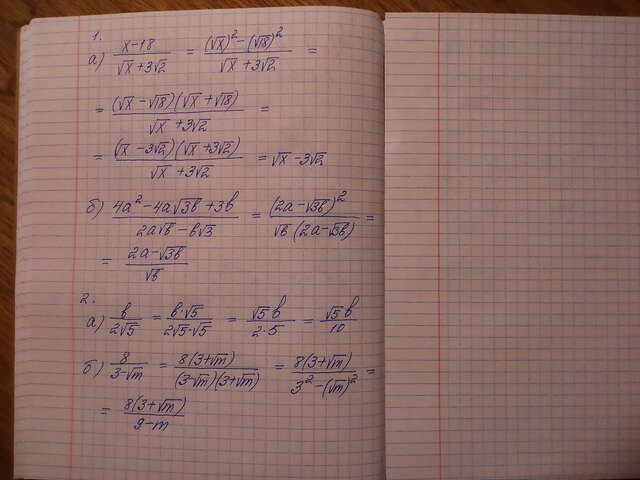 1.
а) x-18/√x+3√2 = (√x)²-(√18)²/√x+3√2 =
= (√x-√18)(√x+√18)/√x+3√2 =
= (√x-3√2)(√x+3√2)/√x+3√2 = √x-3√2
б) 4a²-4a√3b+3b/2a√b-b√3 = (2a-√3b)²/√b(2a-√3b) =
= 2a-√3b/√b
2.
а) b/2√5 = b·√5/2√5·√5 = √5b/2·5 = √5b/10
б) 8/3-√m = 8(3+√m)/(3-√m)(3+√m) = 8(3+√m)/3²-(√m)² =
= 8(3+√m)/9-m